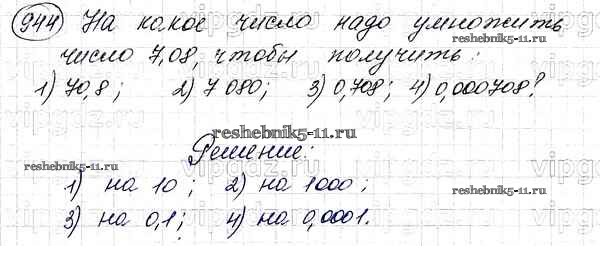 944 На какое число надо умножить
число 7,08, чтобы получить:
1) 70,8; 2) 7 080; 3) 0,708; 4) 0,000708?
reshebnik5-11.ru
Решение:
reshebnik5-11.ru
reshebnik5-11.ru
1) на 10; 2) на 1000;
3) на 0,1; 4) на 0,0001.